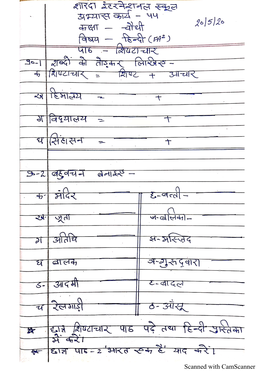 शारदा इंटरनेशनल स्कूल
अभ्यास कार्य - 55
20/5/20
कक्षा - चौथी
विषय - हिन्दी
पाठ - शिष्टाचार
प्र०-1 शब्दों को तोड़कर लिखिए -
क शिष्टाचार = शिष्ट + आचार
ख हिमालय = +
ग विद्यालय = +
घ सिंहासन = +
प्र०-2 बहुवचन बनाइए -
क- मंदिर
ख- जूता
ग अतिथि
घ बालक
ङ- आदमी
च रेलगाड़ी
छ- बत्ती -
ज- बालिका -
झ- मस्जिद
ञ- गुरुद्वारा
ट- बादल
ठ- आँसू
छात्र शिष्टाचार पाठ पढ़े तथा हिन्दी पुस्तिका
में करें।
छात्र पाठ-2 'भारत एक है' याद करें।
Scanned with CamScanner